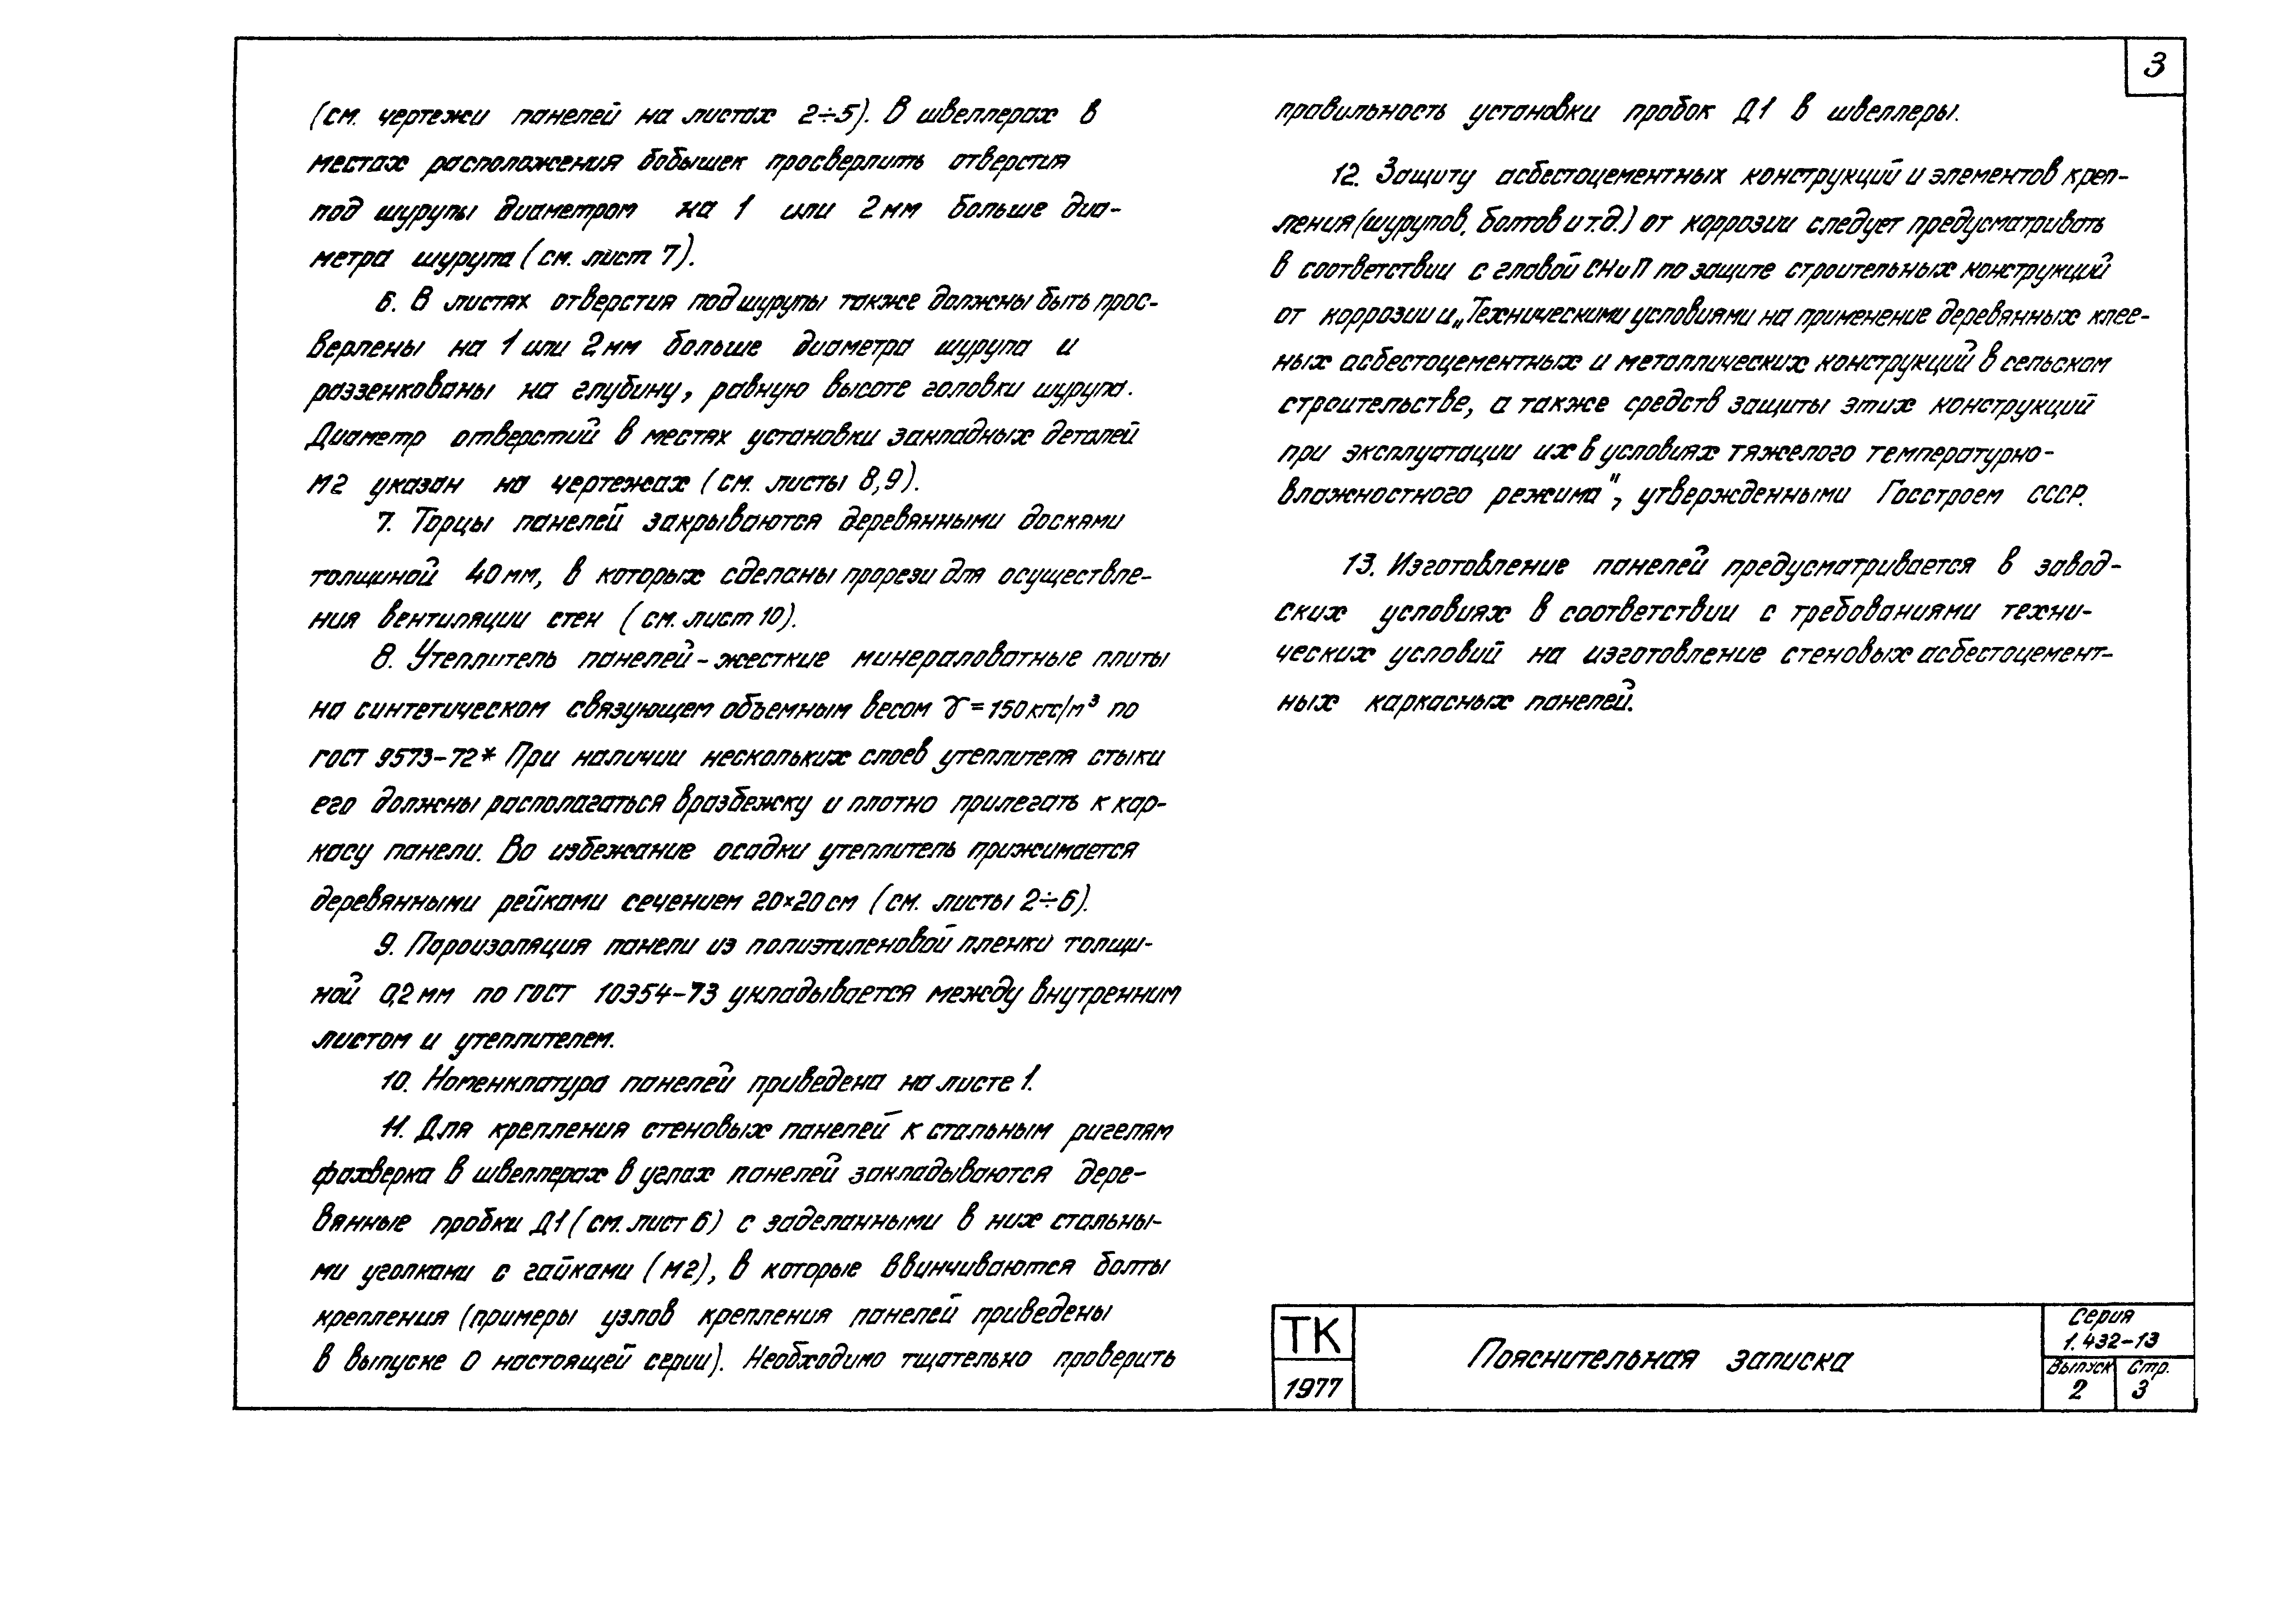 3
(см. чертежи панелей на листах 2÷5). В швеллерах в
местах расположения бобышек просверлить отверстия
под шурупы диаметром на 1 или 2 мм больше диа-
метра шурупа (см. лист 7).
6. В листах отверстия под шурупы также должны быть прос-
верлены на 1 или 2 мм больше диаметра шурупа и
раззенкованы на глубину, равную высоте головки шурупа.
Диаметр отверстий в местах установки закладных деталей
М2 указан на чертежах (см. листы 8,9).
7. Торцы панелей закрываются деревянными досками
толщиной 40 мм, в которых сделаны прорези для осуществле-
ния вентиляции стен (см. лист 10).
8. Утеплитель панелей - жесткие минераловатные плиты
на синтетическом связующем объемным весом γ = 150 кгс/м³ по
ГОСТ 9573-72* При наличии нескольких слоев утеплителя стыки
его должны располагаться вразбежку и плотно прилегать к кар-
касу панели. Во избежание осадки утеплитель прижимается
деревянными рейками сечением 20×20 см (см. листы 2÷6).
9. Пароизоляция панели из полиэтиленовой пленки толщи-
ной 0,2 мм по ГОСТ 10354-73 укладывается между внутренним
листом и утеплителем.
10. Номенклатура панелей приведена на листе 1.
11. Для крепления стеновых панелей к стальным ригелям
фахверка в швеллерах в углах панелей закладываются дере-
вянные пробки Д1 (см. лист 6) с заделанными в них стальны-
ми уголками с гайками (М2), в которые ввинчиваются болты
крепления (примеры узлов крепления панелей приведены
в выпуске 0 настоящей серии). Необходимо тщательно проверить
правильность установки пробок Д1 в швеллеры.
12. Защиту асбестоцементных конструкций и элементов креп-
ления (шурупов, болтов и т.д.) от коррозии следует предусматривать
в соответствии с главой СНиП по защите строительных конструкций
от коррозии и „Техническими условиями на применение деревянных клее-
ных асбестоцементных и металлических конструкций в сельском
строительстве, а также средств защиты этих конструкций
при эксплуатации их в условиях тяжелого температурно-
влажностного режима", утвержденными Госстроем СССР.
13. Изготовление панелей предусматривается в завод-
ских условиях в соответствии с требованиями техни-
ческих условий на изготовление стеновых асбестоцемент-
ных каркасных панелей.
ТК
1977
Пояснительная записка
Серия
1.432-13
Выпуск Стр.
2 3